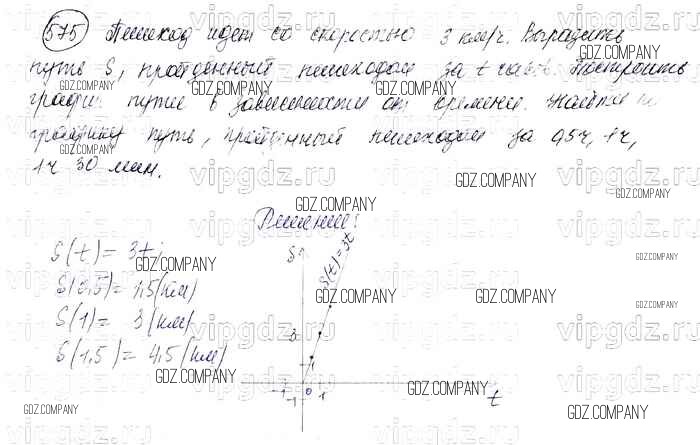 575 Пешеход идет со скоростью 3 км/ч. Выразить
путь S, пройденный пешеходом за t часов. Построить
график пути в зависимости от времени. Найти по
графику путь, пройденный пешеходом за 0,5ч, 1ч,
1ч 30 мин.
Решение:
S(t) = 3t;
S(0,5) = 1,5 (км)
S(1) = 3 (км)
S(1,5) = 4,5 (км)
S
S(t) = 3t
3
1
-1 0 1 t
-1
GDZ.COMPANY
vipgdz.ru